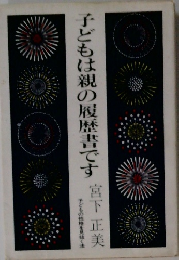 子どもは親の履歴書です
宮下正美